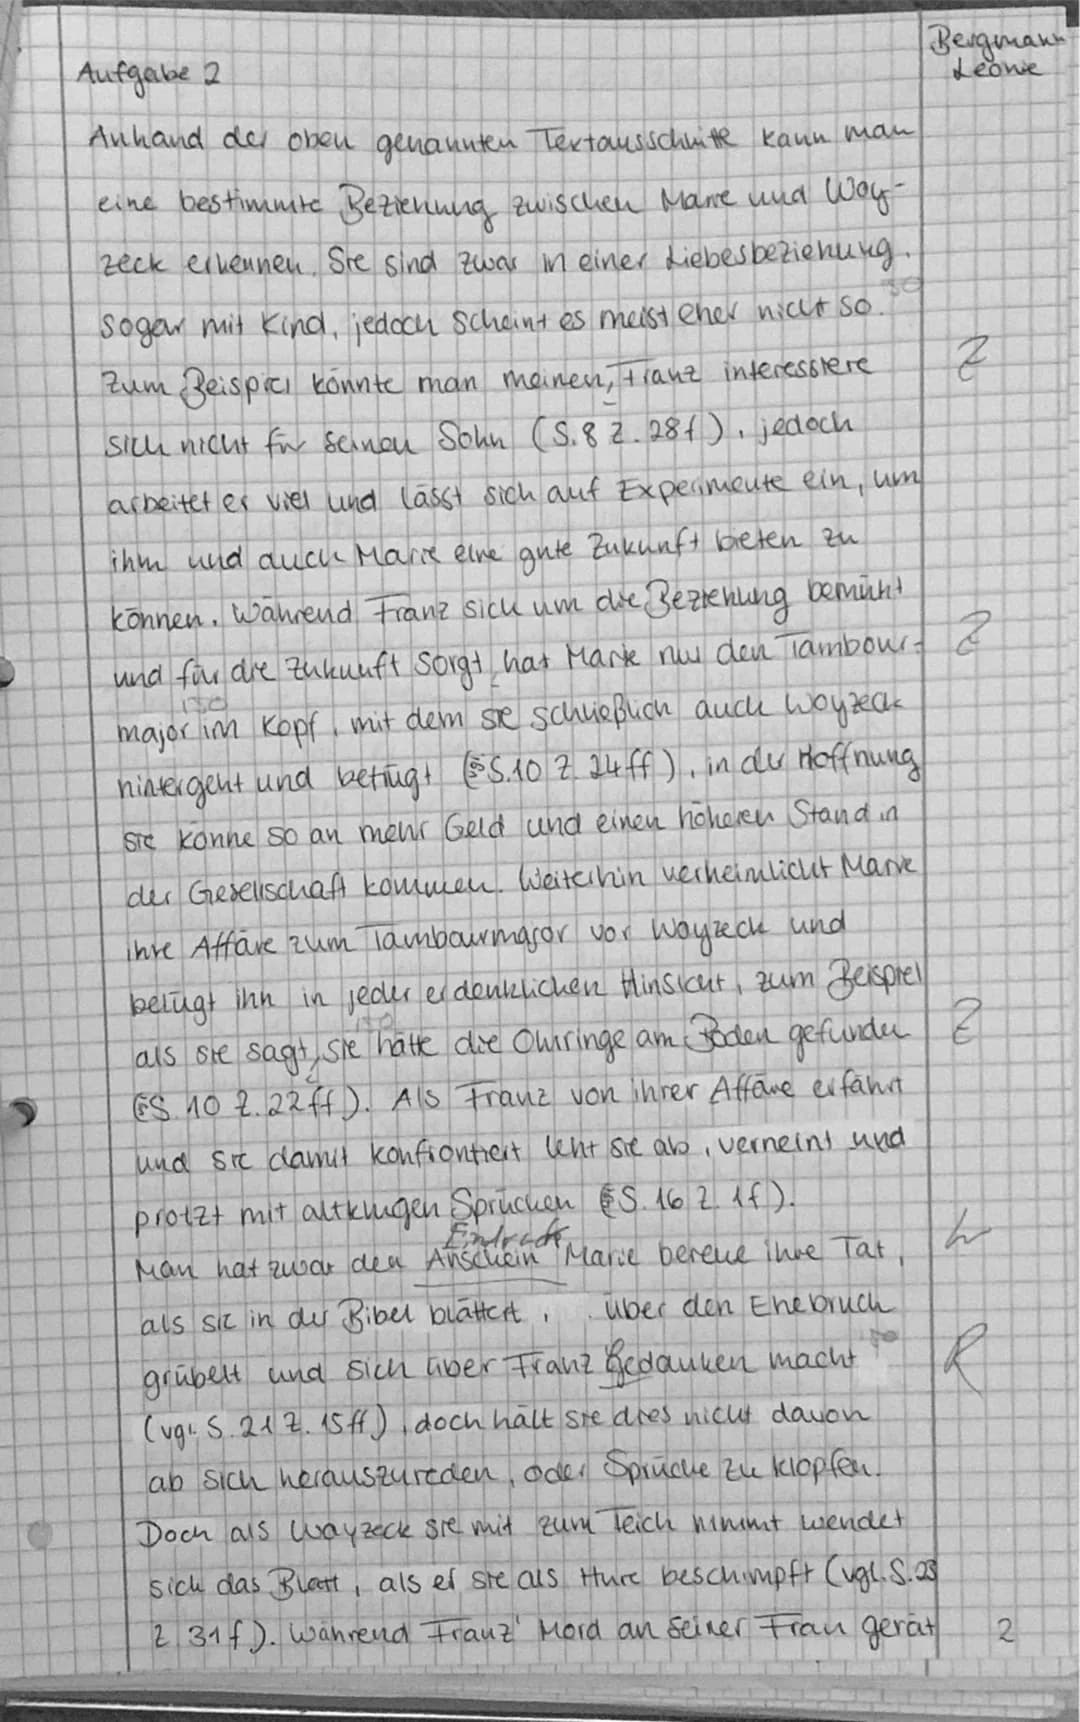 Bergmann
Leonie
Aufgabe 2
Anhand der oben genannten Textausschnitte kann man
eine bestimmte Beziehung zwischen Marie und Woy-
zeck erkennen. Sie sind zwar in einer Liebesbeziehung,
sogar mit Kind, jedoch scheint es meist eher nicht so.
Zum Beispiel könnte man meinen, Franz interessiere Z
sich nicht für seinen Sohn (S.8 Z.28f), jedoch
arbeitet er viel und lässt sich auf Experimente ein, um
ihm und auch Marie eine gute Zukunft bieten zu
können. Während Franz sich um die Beziehung bemüht
und für die Zukunft sorgt, hat Marie nur den Tambour- Z
major im Kopf, mit dem sie schließlich auch Woyzeck
hintergeht und betrügt (S.10 Z.24ff), in der Hoffnung
sie könne so an mehr Geld und einen höheren Stand in
der Gesellschaft kommen. Weiterhin verheimlicht Marie
ihre Affäre zum Tambourmajor vor Woyzeck und
belügt ihn in jeder erdenklichen Hinsicht, zum Beispiel
als sie sagt, sie hätte die Ohrringe am Boden gefunden Z
(S.10 Z.22ff). Als Franz von ihrer Affäre erfährt
und sie damit konfrontiert lehnt sie ab, verneint und
protzt mit altklugen Sprüchen (S.16 Z.1f).
Eindruck
Man hat zwar den Anschein Marie bereue ihre Tat,
als sie in der Bibel blättert, über den Ehebruch
grübelt und sich über Franz Gedanken macht R
(vgl. S.21 Z.15ff), doch hält sie dies nicht davon
ab sich herauszureden, oder Sprüche zu klopfen.
Doch als Woyzeck sie mit zum Teich nimmt wendet
sich das Blatt, als er sie als Hure beschimpft (vgl. S.23
Z 31f). Während Franz' Mord an seiner Frau gerät 2